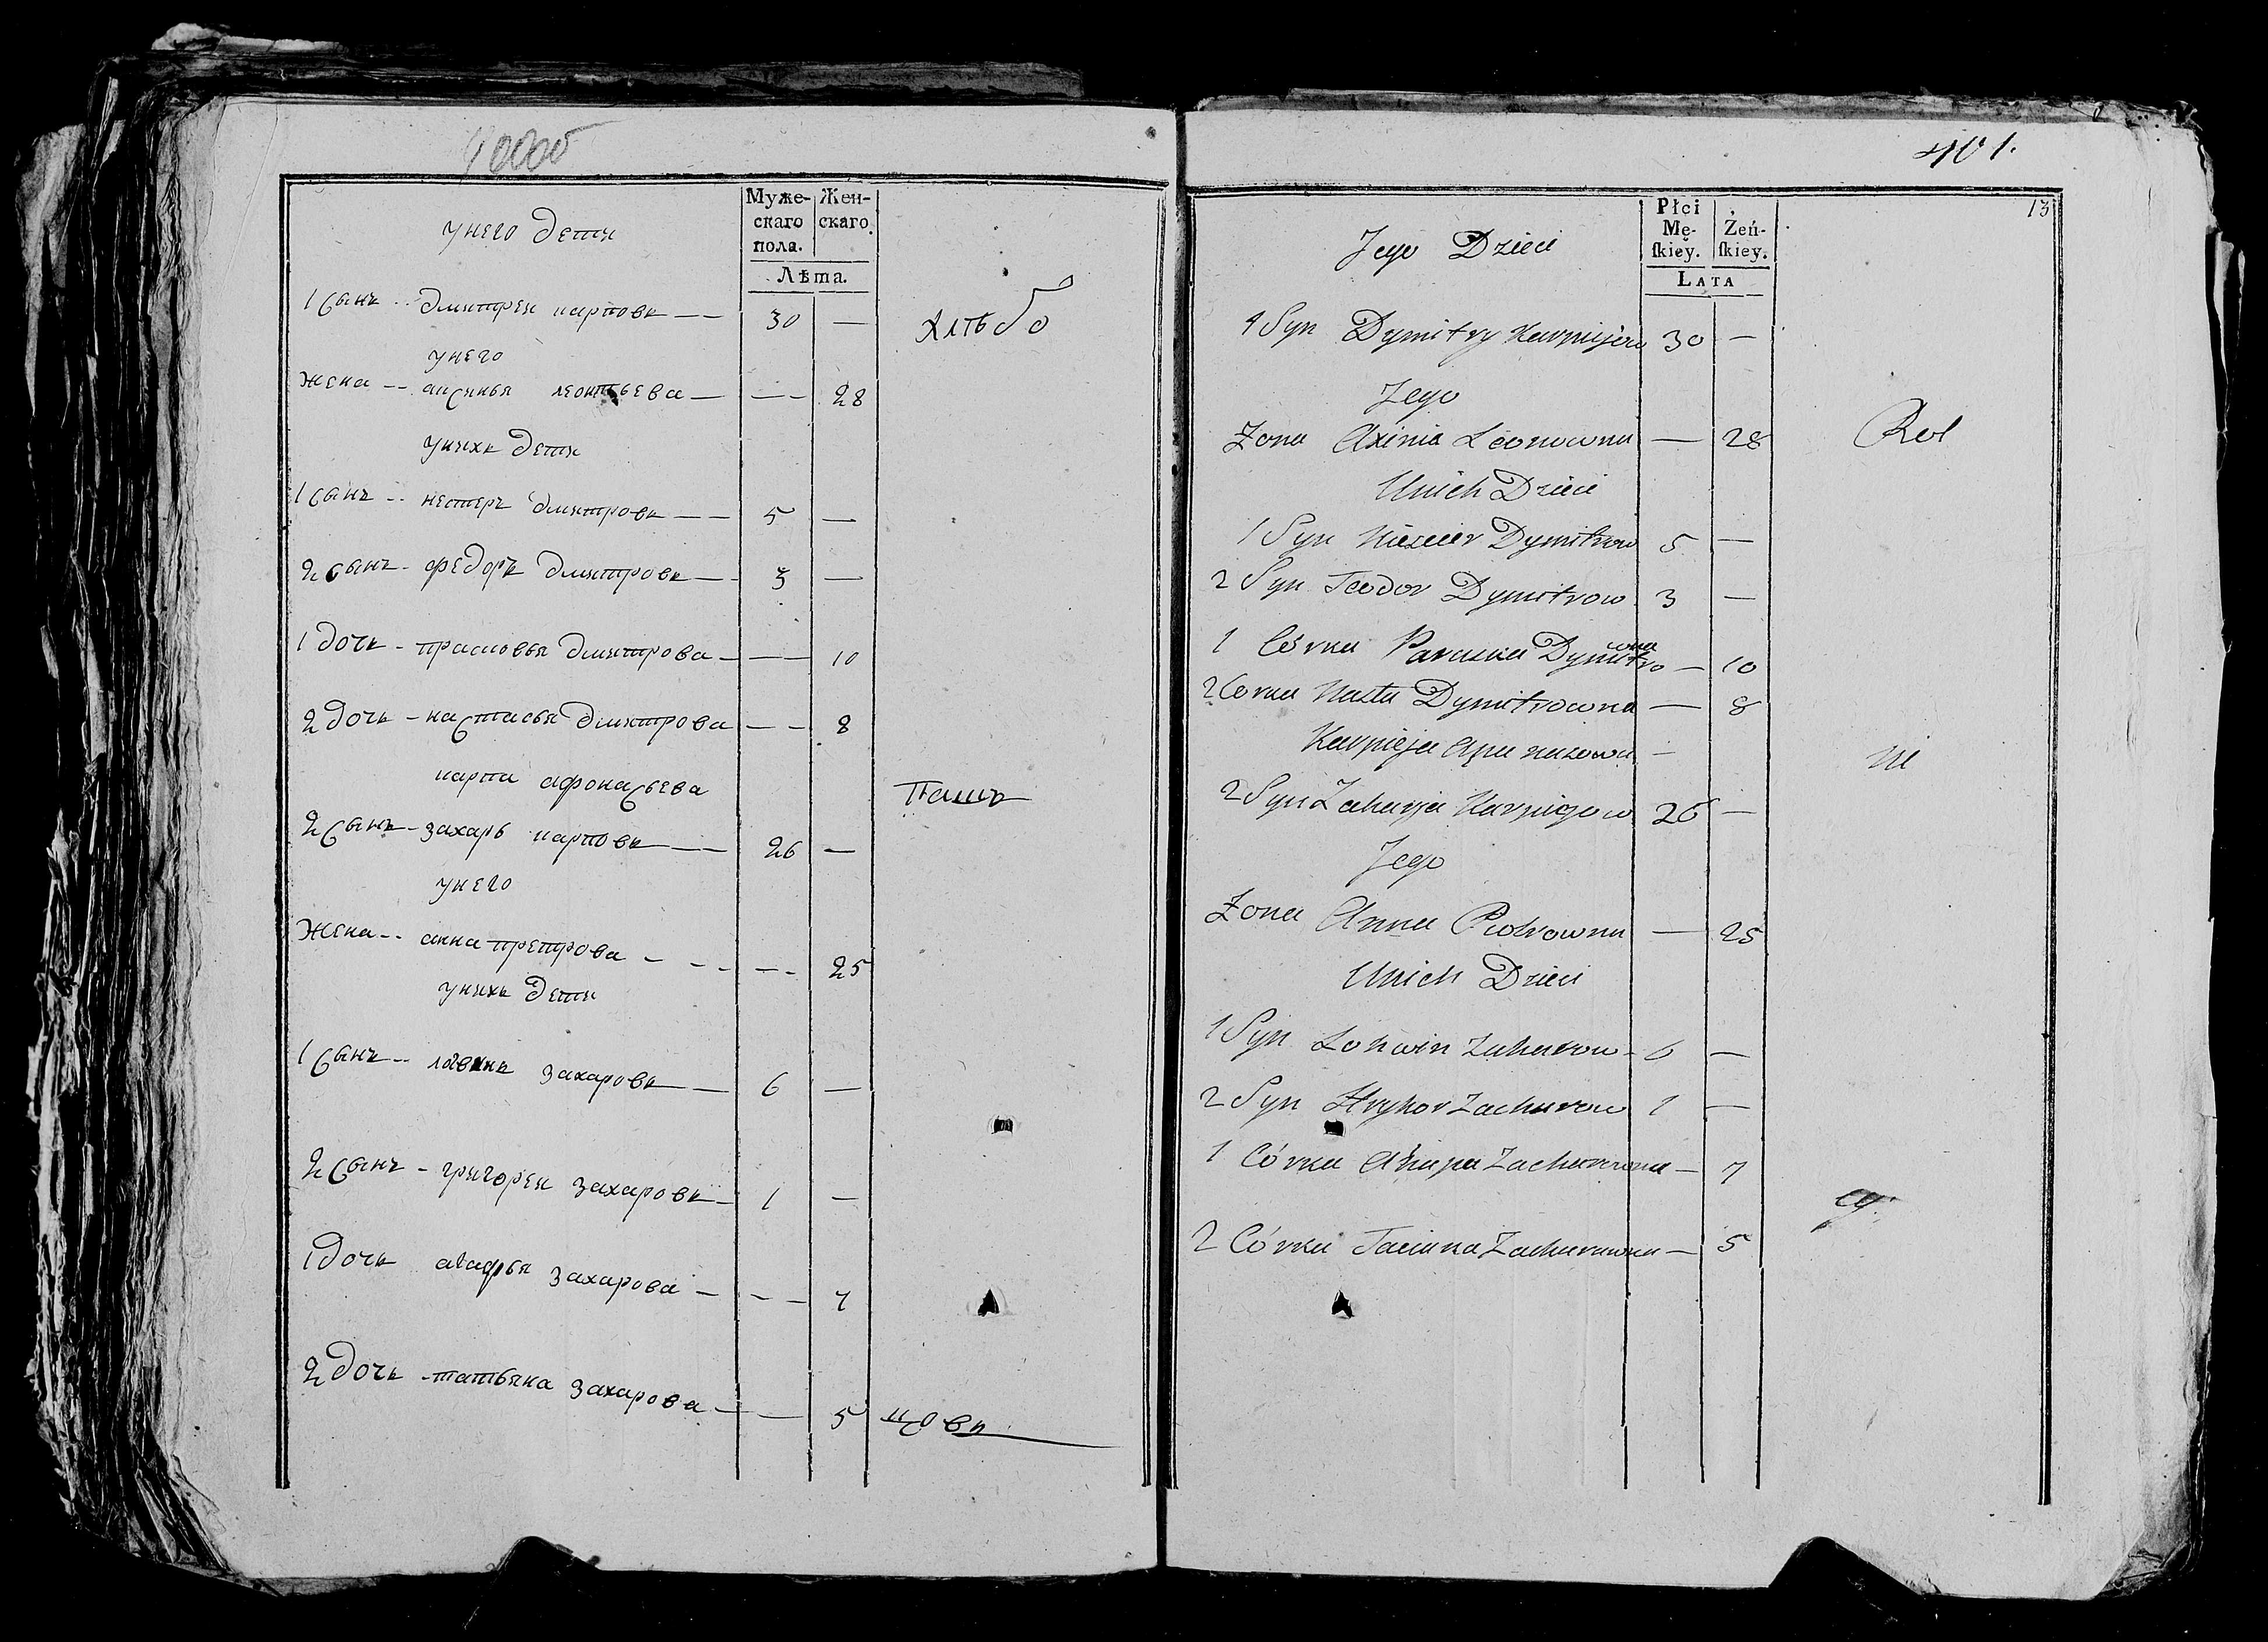 400об
унего дети
Муже-
скаго
пола.
Жен-
скаго.
Лѣта.
1 сынъ -- дмитреи карповъ -- 30 —
хлѣбо
унего
жена -- аксинья леонтьева — -- 28
унихъ дети
1 сынъ -- нестеръ дмитровъ -- 5 —
2 сынъ - федоръ дмитровъ -- 3 —
1 дочь - прасковья дмитрова — — 10
2 дочь - настасья дмитрова -- 8
карпа афонасьева
пашъ
2 сынъ - захаръ карповъ -- 26 —
унего
жена -- анна претрова - -- 25
унихъ дети
1 сынъ -- захаровъ — 6 —
2 сынъ - григореи захаровъ - 1 —
1 дочь агафья захарова - -- 7
2 дочь - татьяна захарова — 5
цовъ
401.
13
Jego Dzieci
Płci
Mę-
ſkiey.
Żeń-
ſkiey.
LATA
1 Syn Dymitry Karpiejew 30 —
Jego
Żona Axinia Leonowna — 28
Rol
Unich Dzieci
1 Syn Niescier Dymitrow 5 —
2 Syn Teodor Dymitrow 3 —
1 Córka Paraska Dymitrowna — 10
2 Corka Nasta Dymitrowna — 8
Karpieja Apanasowa —
ni
2 Syn Zaharja Karpiejow 26 —
Jego
Żona Anna Piotrowna — 25
Unich Dzieci
1 Syn Lohwin Zaharow - 6 —
2 Syn Hryhor Zacharow 1 —
1 Córka Ahapa Zacharowna — 7
cy.
2 Córka Taciana Zacharowna — 5